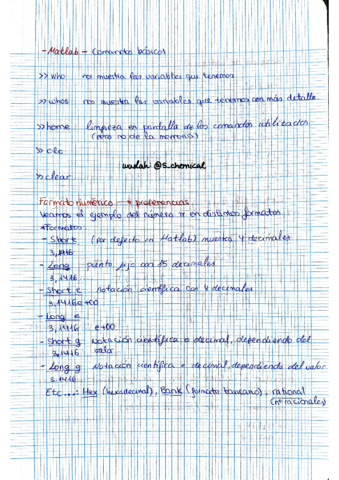 - Matlab - Comandos básicos
>> who nos muestra las variables que tenemos
>> whos nos muestra las variables que tenemos con más detalle
>> home limpieza en pantalla de los comandos utilizados
(pero no de la memoria)
>> clc
wuolah: @S_chemical
>> clear
Formato numérico → preferencias
Veamos el ejemplo del número π en distintos formatos
Formatos:
- Short (por defecto en Matlab) muestra 4 decimales
3,1416
- Long punto fijo con 15 decimales
3,1416
- Short e notación científica con 4 decimales
3,1416 e+00
- Long e
3,1416 e+00
- Short g Notación científica o decimal, dependiendo del
3,1416 valor
- Long g Notación científica o decimal, dependiendo del valor
3.1416
Etc...: Hex (hexadecimal), Bank (formato bancario), rational
(nº racionales)